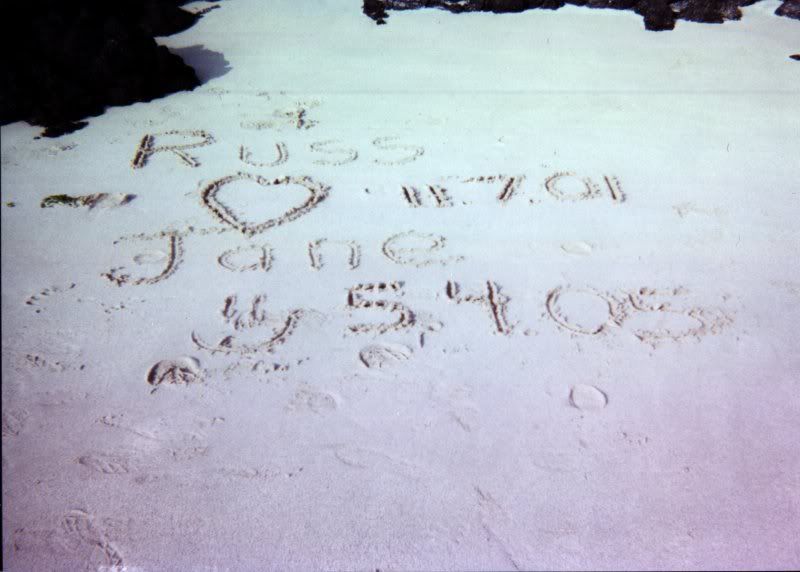 Russ
♡ 11.7.01
Jane
5.4.05